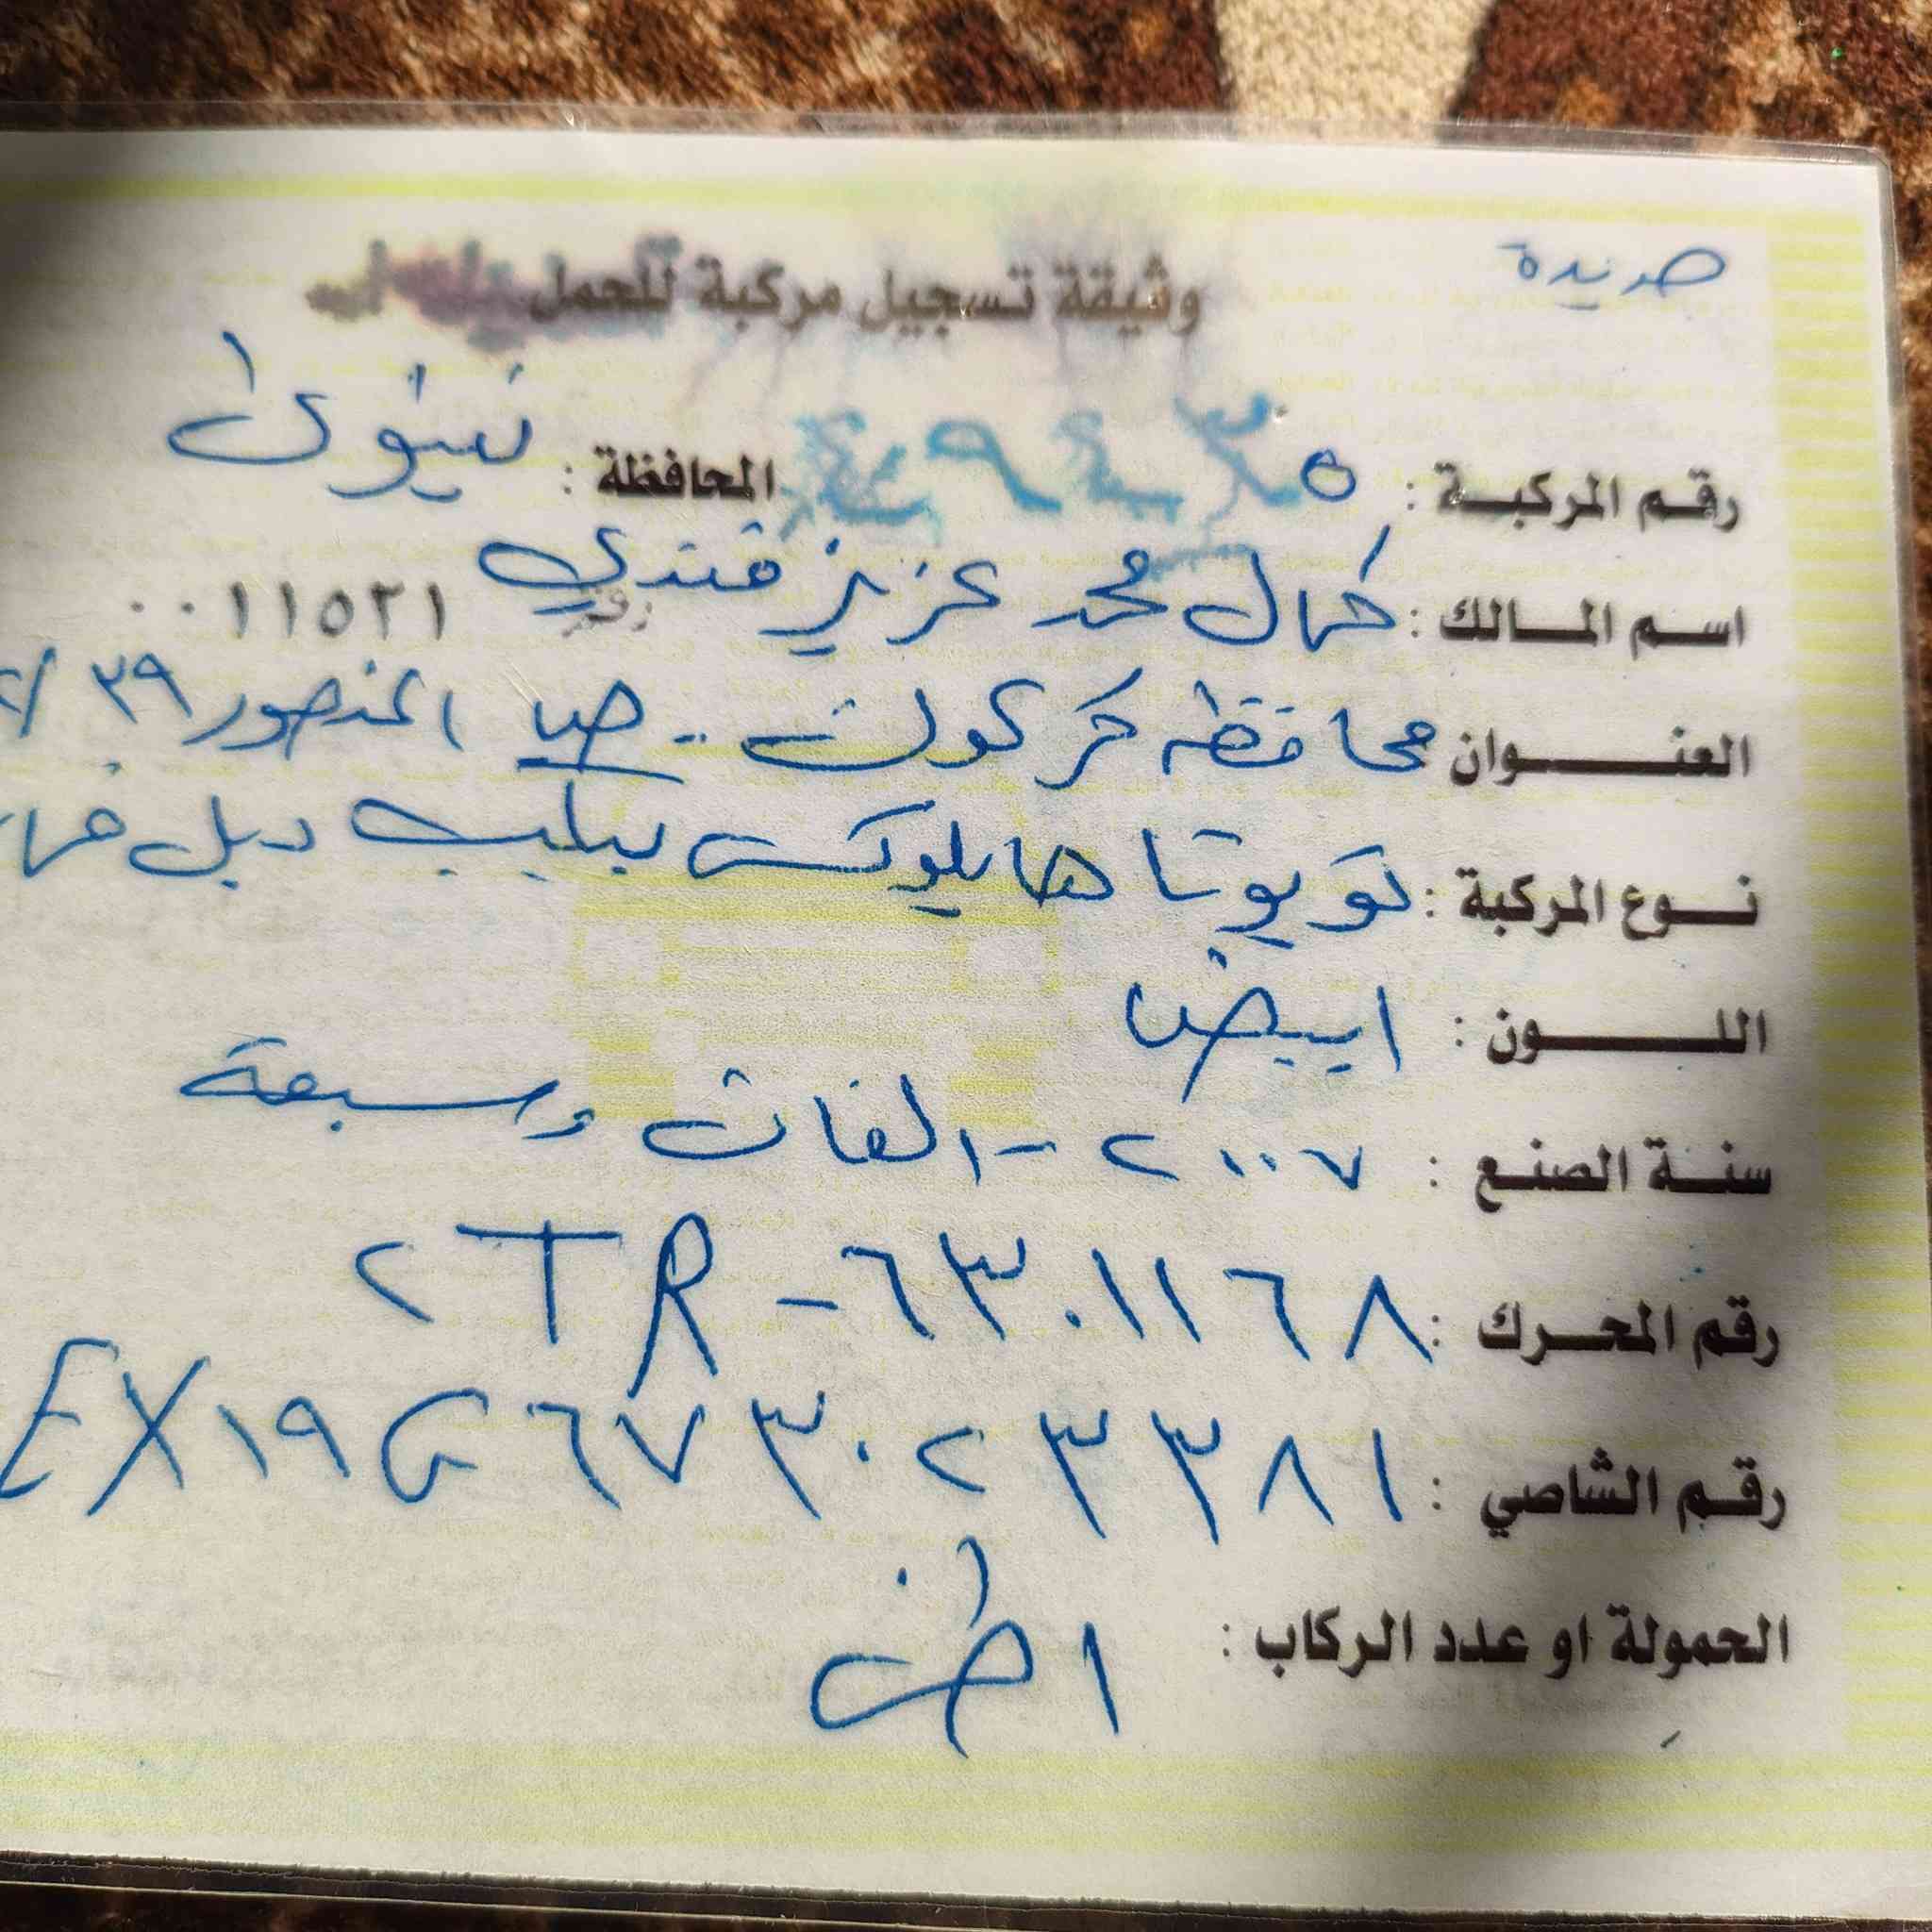 وثيقة تسجيل مركبة للحمل
رقم المركبة : المحافظة : نينوى
اسم المالك : كمال محمد عزيز فندي
رقم ٠٠١١٥٢١
العنوان محافظة كركوك - حي المنصور ٣٩ /
نوع المركبة : تويوتا هايلوكس بيكب دبل
اللون : ابيض
سنة الصنع : ٢٠٠٧ - الفان وسبعة
رقم المحرك : ٢TR - ٦٣٠١١٦٨
رقم الشاصي : EX١٩G٦٧٣٠٢٣٣٨١
الحمولة او عدد الركاب : ١ طن